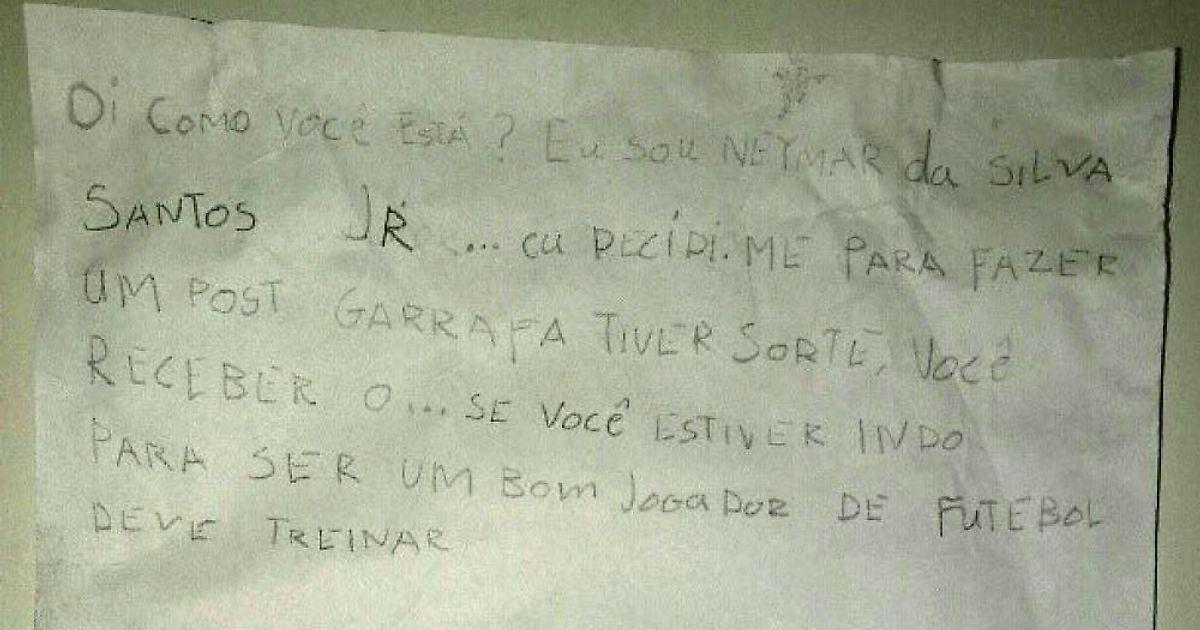 Oi Como Você Está? Eu sou NEYMAR da SILVA
SANTOS JR ... eu DECIDI.ME PARA FAZER
UM POST GARRAFA TIVER SORTE, Você
RECEBER O... SE Você ESTIVER INDO
PARA SER UM Bom JOGADOR DE FUTEBOL
DEVE TREINAR